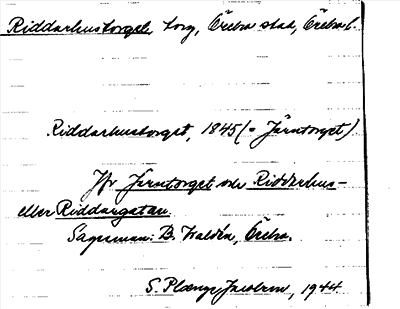 Riddarhustorget, torg, Örebro stad, Örebro l.
Riddarhustorget, 1845 (= Järntorget)
Jfr Järntorget och Riddarhus-
eller Riddargatan.
Sagesman: B. Waldén, Örebro.
S. Plænge Jacobson, 1944